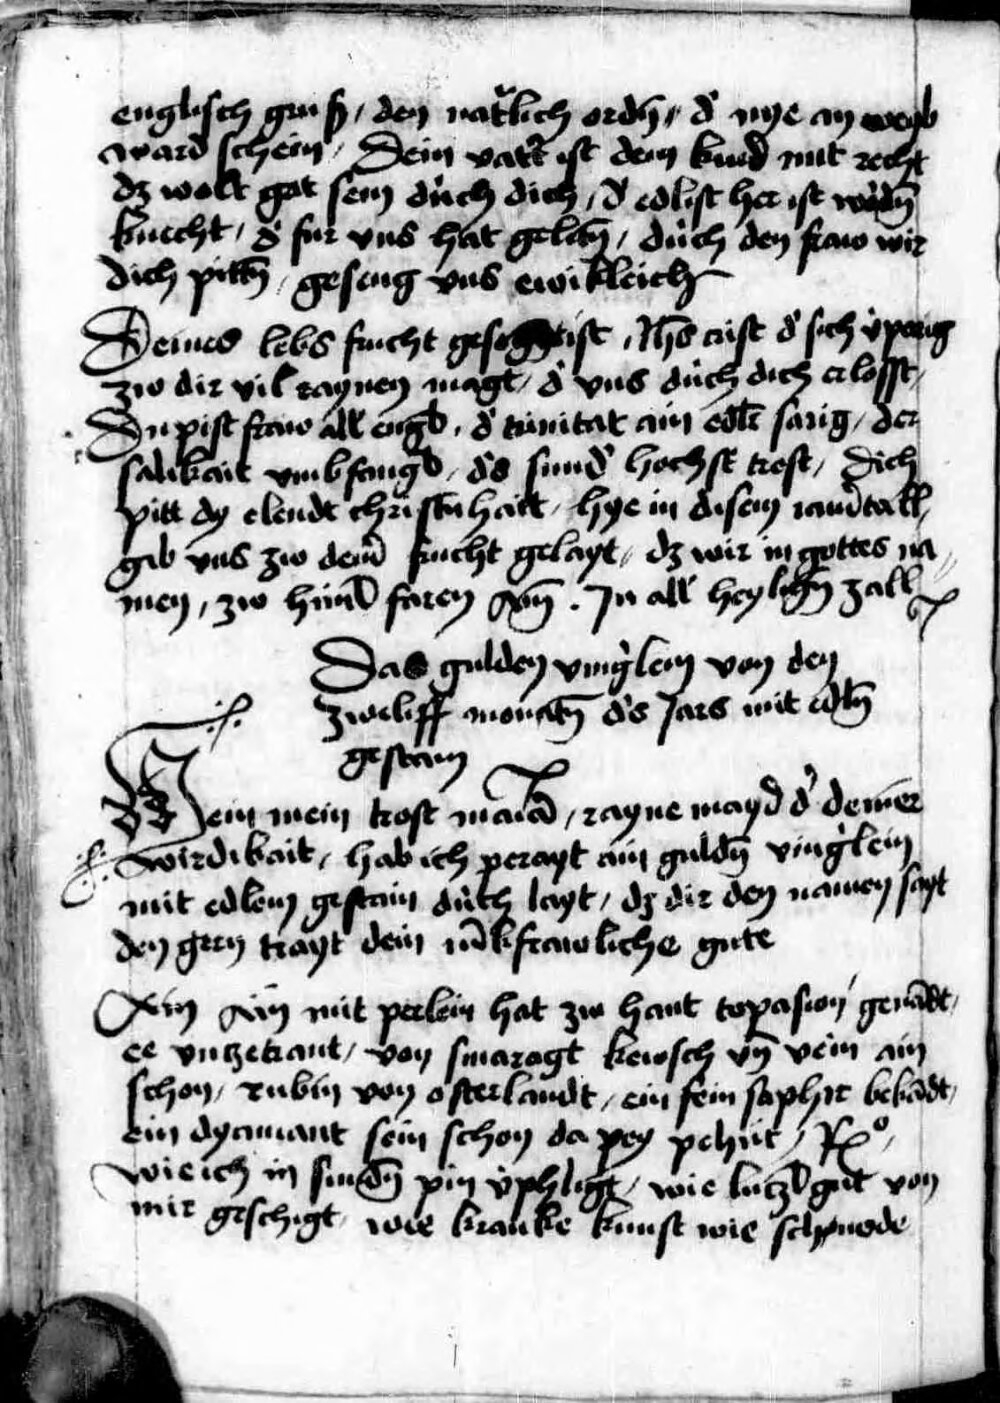 englisch grus / den natůrlich ordñ / d' nye an weyb
ward schein / Dein vatt' ist dein kind mit recht
dz wolt got sein durch dich / d' edlist her ist wordñ
knecht / d' fur vns hat gelitñ / durch den fraw wir
dich pittñ / geseng vns ewikleich
Deines leibs frucht gesegēt ist / Ihs crist d' sich
zw dir vil raynen magt / d' vns durch dich erlosst /
Du pist fraw all' engl / d' trinitat ain edlr sarig / der
salikait vmbfang / d's sund' hochst trost / Dich
pitt dy elendt christñhait / hye in disem iam'tall /
gib vns zw dein' frucht gelayt / dz wir in gottes na
men / zw himl faren Am . In all' heyligñ zall
Das gulden vingerlein von den
zwelff monatñ d's Jars mit edlñ
gestain
Mein mein trost maria / rayne mayd d' deiner
wirdikait / hab ich perayt ain guldñ vingerlein
mit edlem gestain durch layt / dz dir den namen sayt
den gern trayt dein iūkfrawliche gute
Am Am mit perlein hat zw hant topasion genādt /
ee vntzetrant / von smaragt kewsch vñ vein ain
schon / Rubin von osterlandt / ein fein saphir bekādt /
ein dyamant sein schon da pey pehut / Ro /
wie ich in sundñ pin v'phligt / wie lutzl gut von
mir geschigt / wie kranke kunst wie schnode